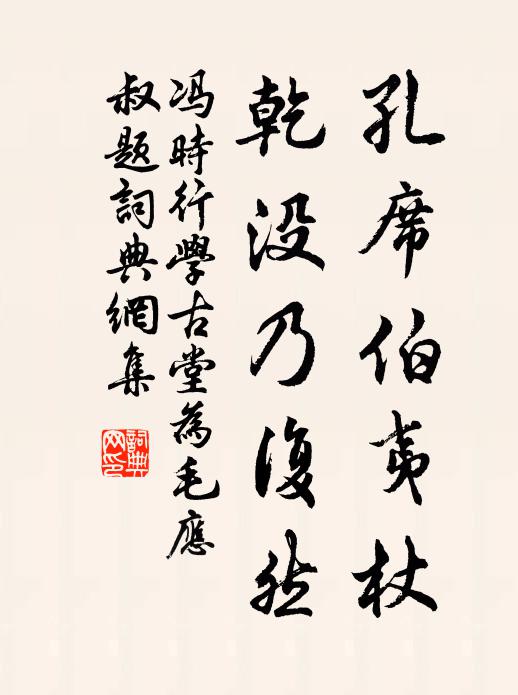 孔席伯夷杖
乾没乃復然
冯時行學古堂為毛應
叔題詞典網集
詞典网印